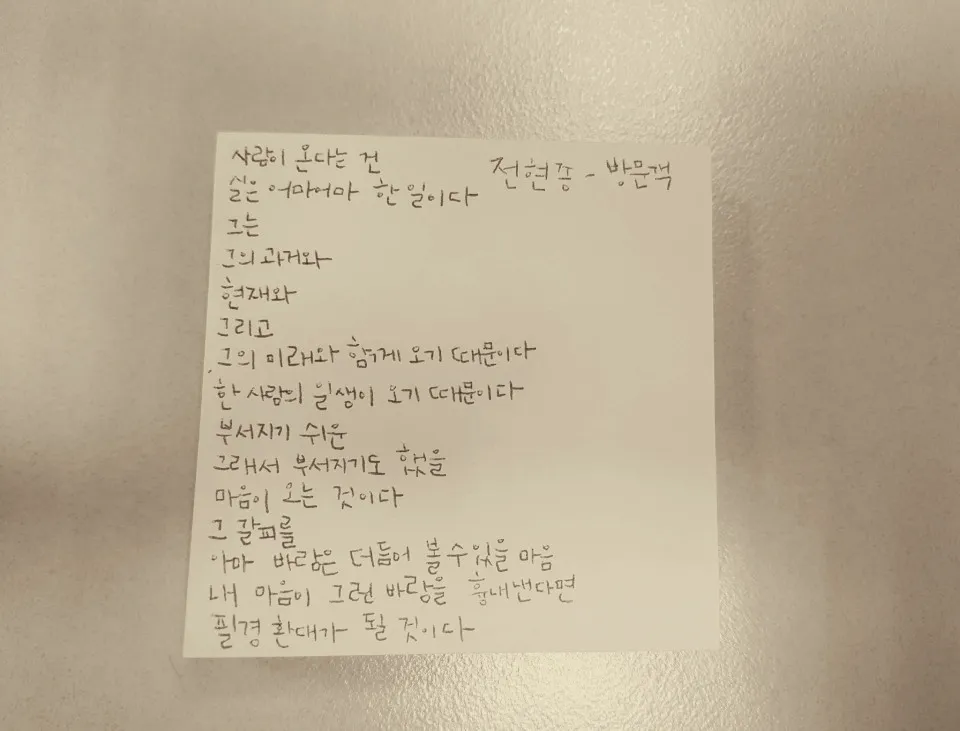 사람이 온다는 건
전현종 - 방문객
실은 어마어마 한 일이다
그는
그의 과거와
현재와
그리고
그의 미래와 함께 오기 때문이다
한 사람의 일생이 오기 때문이다
부서지기 쉬운
그래서 부서지기도 했을
마음이 오는 것이다
그 갈피를
아마 바람은 더듬어 볼 수 있을 마음
내 마음이 그런 바람을 흉내낸다면
필경 환대가 될 것이다